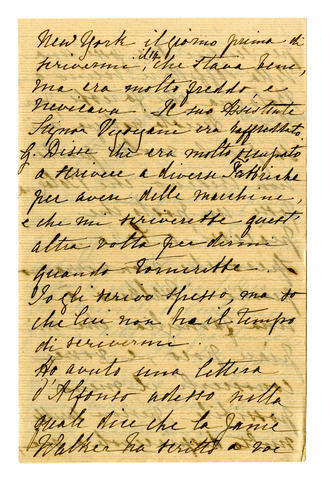 New York il giorno prima di
scrivermi, il 14, che stava bene,
ma era molto freddo, e
nevicava. Il suo Assistente
Signor Vivogani era raffreddato.
G. Disse che era molto occupato
a scrivere a diverse Fabbriche
per avere delle macchine,
e che mi scriverebbe quest
altra volta per dirmi
quando tornerebbe...
Io gli scrivo spesso, ma so
che lui non ha il tempo
di scrivermi.
Ho avuto una lettera
d'Alfonso adesso nella
quale dice che la Janie
Walker ha scritto a voi